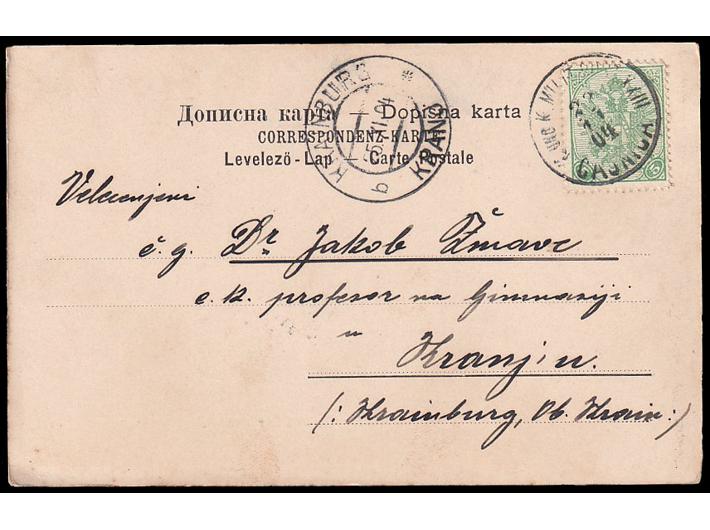 Дописна карта – Dopisna karta
CORRESPONDENZ-KARTE
Levelező-Lap – Carte Postale
KRAINBURG * KRANJ
5.VI.04
b
K. UND K. MILIT. XXIII
04
CAJNICA
5
Velecenjeni
č. g. Dr. Jakob Žmavc
c. k. profesor na Gimnaziji
u
Kranj-u.
(: Krainburg, Ob. Krain :)